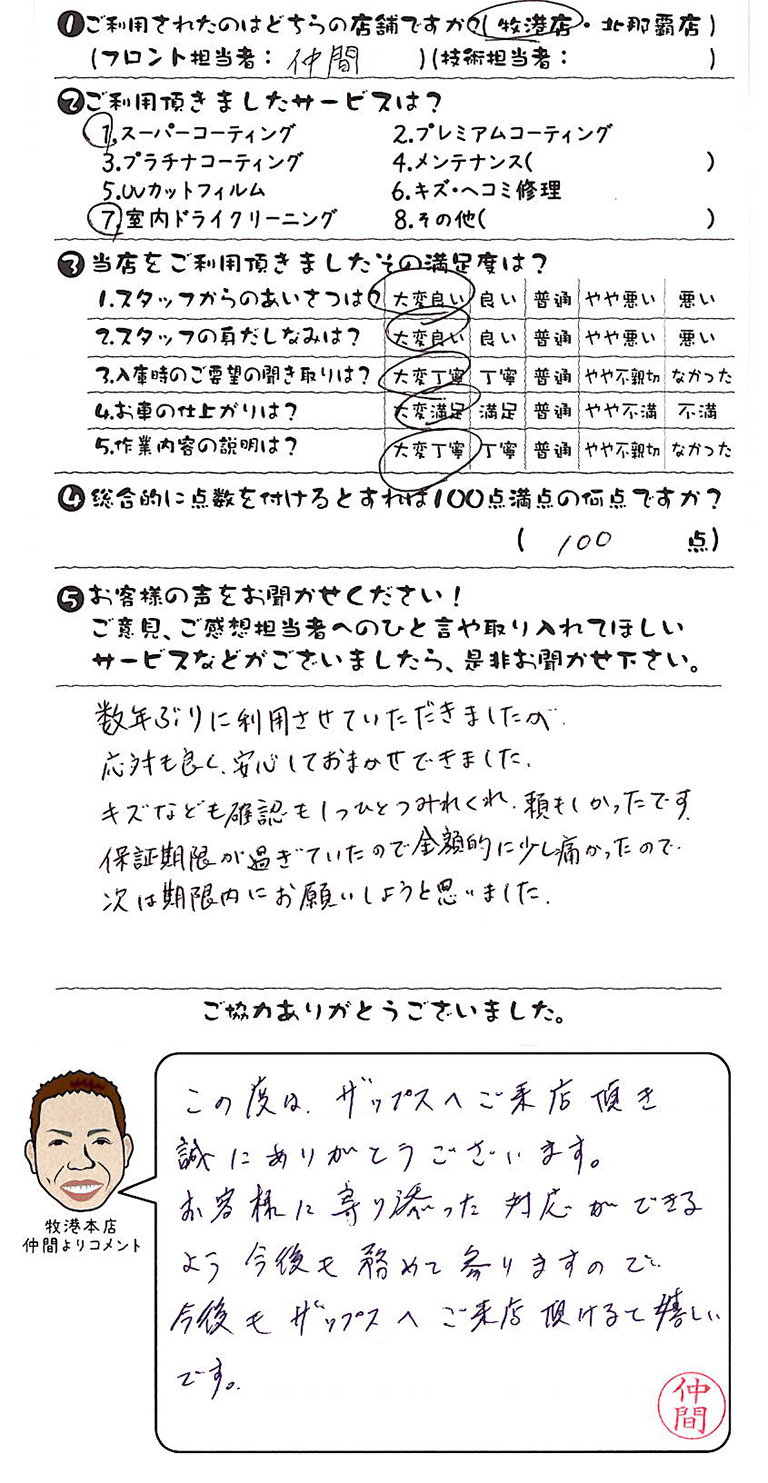 ❶ご利用されたのはどちらの店舗ですか?(牧港店・北那覇店)
(フロント担当者: 仲間 )(技術担当者: )
❷ご利用頂きましたサービスは?
1.スーパーコーティング 2.プレミアムコーティング
3.プラチナコーティング 4.メンテナンス( )
5.UVカットフィルム 6.キズ・ヘコミ修理
7.室内ドライクリーニング 8.その他( )
❸当店をご利用頂きましたその満足度は?
1.スタッフからのあいさつは? 大変良い 良い 普通 やや悪い 悪い
2.スタッフの身だしなみは? 大変良い 良い 普通 やや悪い 悪い
3.入庫時のご要望の聞き取りは? 大変丁寧 丁寧 普通 やや不親切 なかった
4.お車の仕上がりは? 大変満足 満足 普通 やや不満 不満
5.作業内容の説明は? 大変丁寧 丁寧 普通 やや不親切 なかった
❹総合的に点数を付けるとすれば100点満点の何点ですか?
( 100 点)
❺お客様の声をお聞かせください!
ご意見、ご感想担当者へのひと言や取り入れてほしい
サービスなどがございましたら、是非お聞かせ下さい。
数年ぶりに利用させていただきましたが、
応対も良く、安心しておまかせできました。
キズなども確認も1つひとつみれくれ、頼もしかったです
保証期限が過ぎていたので金額的に少し痛かったので、
次は期限内にお願いしようと思いました。
ご協力ありがとうございました。
この度は、ザップスへご来店頂き
誠にありがとうございます。
お客様に寄り添った対応ができる
よう今後も務めて参りますので、
今後もザップスへご来店頂けると嬉しい
です。
牧港本店
仲間よりコメント
仲間